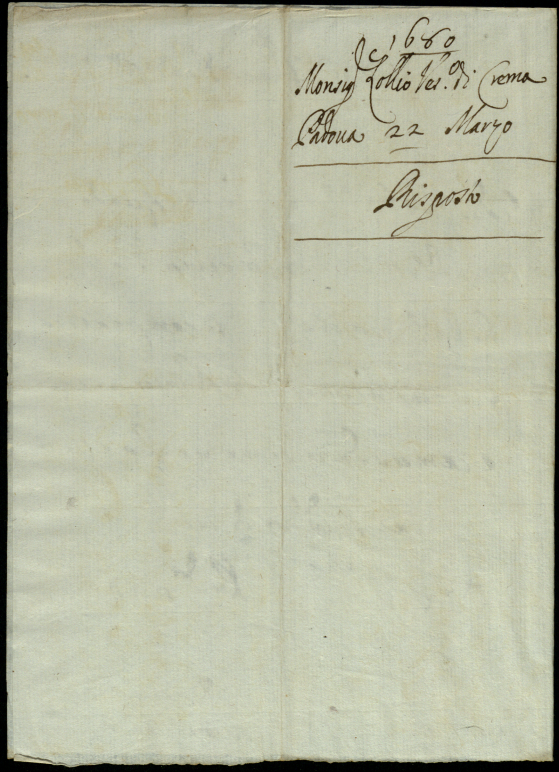 1680
Monsig.r Zollio Ves.o di Crema
Padova 22 Marzo
Risposto